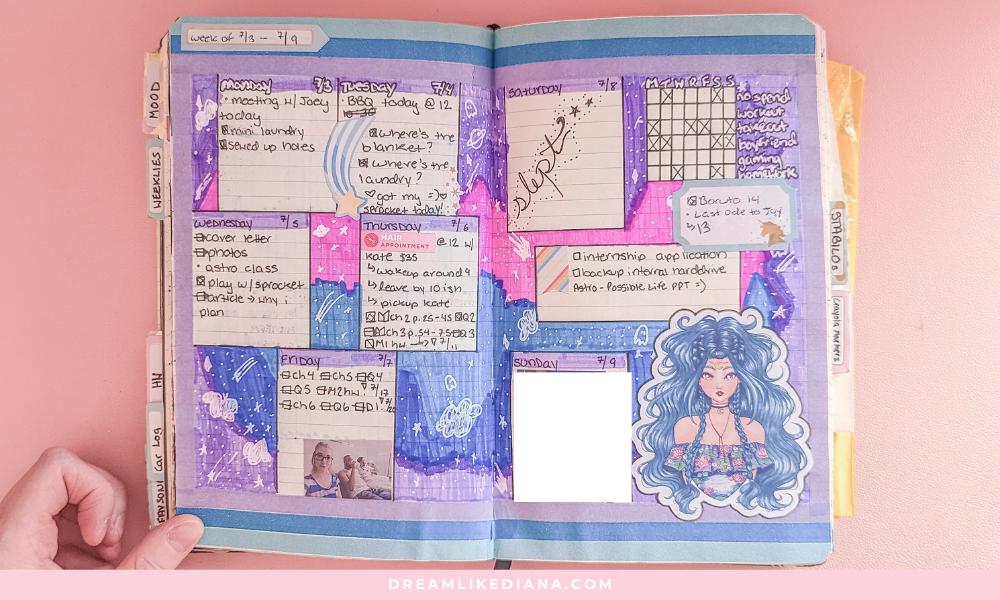 week of 7/3 - 7/9
MOOD
WEEKLIES
HW
Car Log
Monday 7/3
• meeting w/ Joey
today
mini laundry
sewed up holes
Tuesday 7/4
• BBQ today @ 12
where's the
blanket?
where's the
laundry?
got my =)
sprocket today!
Wednesday 7/5
cover letter
photos
• astro class
play w/ sprocket
article → why i
plan
Thursday 7/6
HAIR
APPOINTMENT
@ 12 w/
Kate $35
↳ wakeup around 9
↳ leave by 10 ish
↳ pickup Kate
ch 2 p. 25-45 Q2
ch 3 p. 54-75 Q3
M1 hw → 7/11
Friday 7/7
ch4 ch5 Q4
Q5 M2hw 7/17
ch6 Q6 D1 7/20
Saturday 7/8
slept?
M T W R F S S
no spend
workout
takeout
boyfriend
gaming
homework
Boruto 14
• Last Ode to Joy
↳ 13
internship application
backup internal harddrive
Astro - Possible Life PPT =)
Sunday 7/9
STABILOs
Crayola Markers
DREAMLIKEDIANA.COM